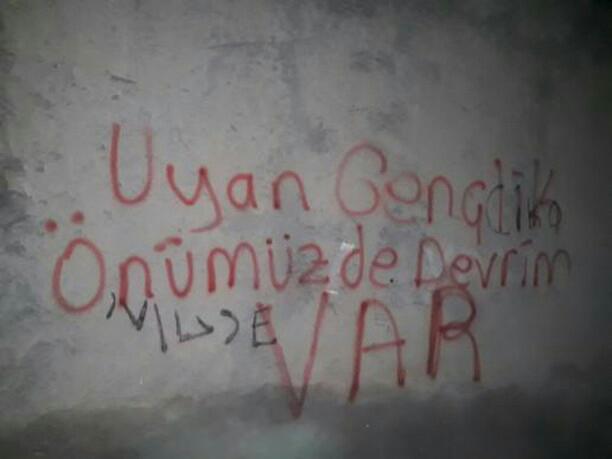 Uyan Gençlik
Önümüzde Devrim
VAR